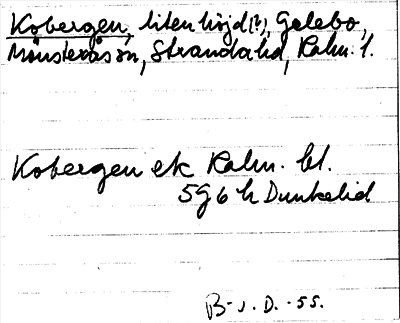 Kobergen, liten höjd(?), Gelebo,
Mönsterås sn, Stranda hd, Kalm. l.
Kobergen ek Kalm. bl.
5g6h Dunkelid
B-J. D. -55.